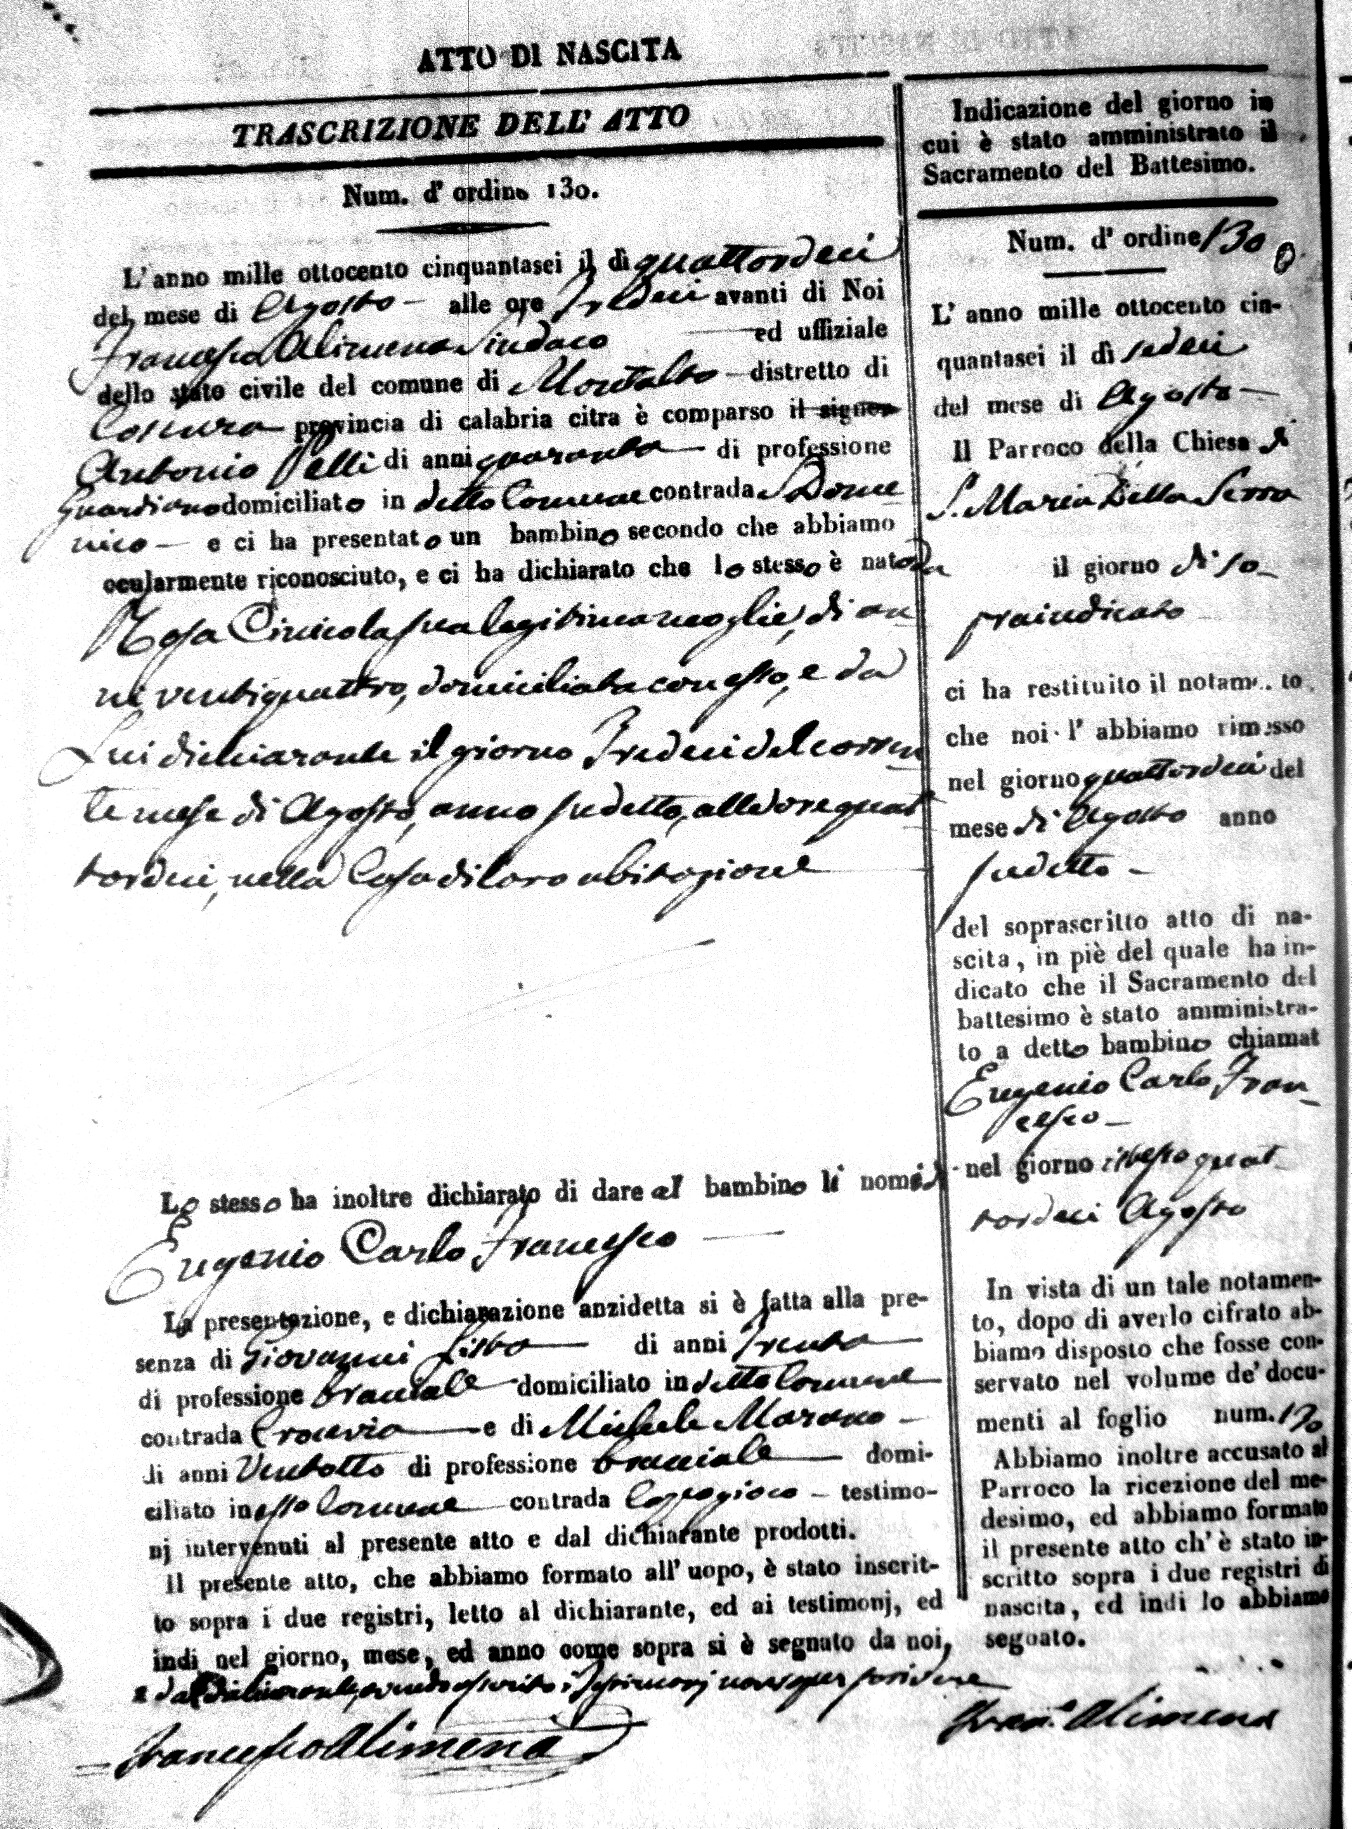 ATTO DI NASCITA
TRASCRIZIONE DELL' ATTO
Num. d' ordine 130.
L' anno mille ottocento cinquantasei il dì quattordeci
del mese di Agosto — alle ore Tredeci avanti di Noi
Francesco Alimena Sindaco ed uffiziale
dello stato civile del comune di Montalto — distretto di
Cosenza provincia di calabria citra è comparso il signor
Antonio Pelli di anni quaranta — di professione
Guardiano domiciliato in detto Comune contrada S. Dome
nico — e ci ha presentato un bambino secondo che abbiamo
ocularmente riconosciuto, e ci ha dichiarato che lo stesso è nato da
Rosa Cinicola sua legitima moglie, di an
ni ventiquattro, domiciliata con esso, e da
Lui dichiarante il giorno Tredeci del corren
te mese di Agosto, anno sudetto, alle ore quat
tordeci, nella Casa di loro abitazione
Lo stesso ha inoltre dichiarato di dare al bambino li nomi di
Eugenio Carlo Francesco —
La presentazione, e dichiarazione anzidetta si è fatta alla pre-
senza di Giovanni Listo — di anni Trenta
di professione bracciale domiciliato in detto Comune
contrada Crocevia — e di Michele Morano —
di anni Ventotto di professione bracciale — domi-
ciliato in esso Comune contrada — testimo-
nj intervenuti al presente atto e dal dichiarante prodotti.
Il presente atto, che abbiamo formato all' uopo, è stato inscrit-
to sopra i due registri, letto al dichiarante, ed ai testimonj, ed
indi nel giorno, mese, ed anno come sopra si è segnato da noi,
e dal dichiarante, avendo asserito i Testimonj non saper scrivere
Francesco Alimena
Indicazione del giorno in
cui è stato amministrato il
Sacramento del Battesimo.
Num. d' ordine 130
L' anno mille ottocento cin-
quantasei il dì sedeci
del mese di Agosto —
Il Parroco della Chiesa di
S. Maria Della Serra
il giorno di so-
praindicato
ci ha restituito il notamento
che noi l' abbiamo rimesso
nel giorno quattordeci del
mese di Agosto anno
sudetto —
del soprascritto atto di na-
scita, in piè del quale ha in-
dicato che il Sacramento del
battesimo è stato amministra-
to a detto bambino chiamat
Eugenio Carlo Fran-
cesco —
nel giorno istesso quat-
tordeci Agosto
In vista di un tale notamen-
to, dopo di averlo cifrato ab-
biamo disposto che fosse con-
servato nel volume de' docu-
menti al foglio num. 130
Abbiamo inoltre accusato al
Parroco la ricezione del me-
desimo, ed abbiamo formato
il presente atto ch' è stato in-
scritto sopra i due registri di
nascita, ed indi lo abbiamo
segnato.
Fran.o Alimena